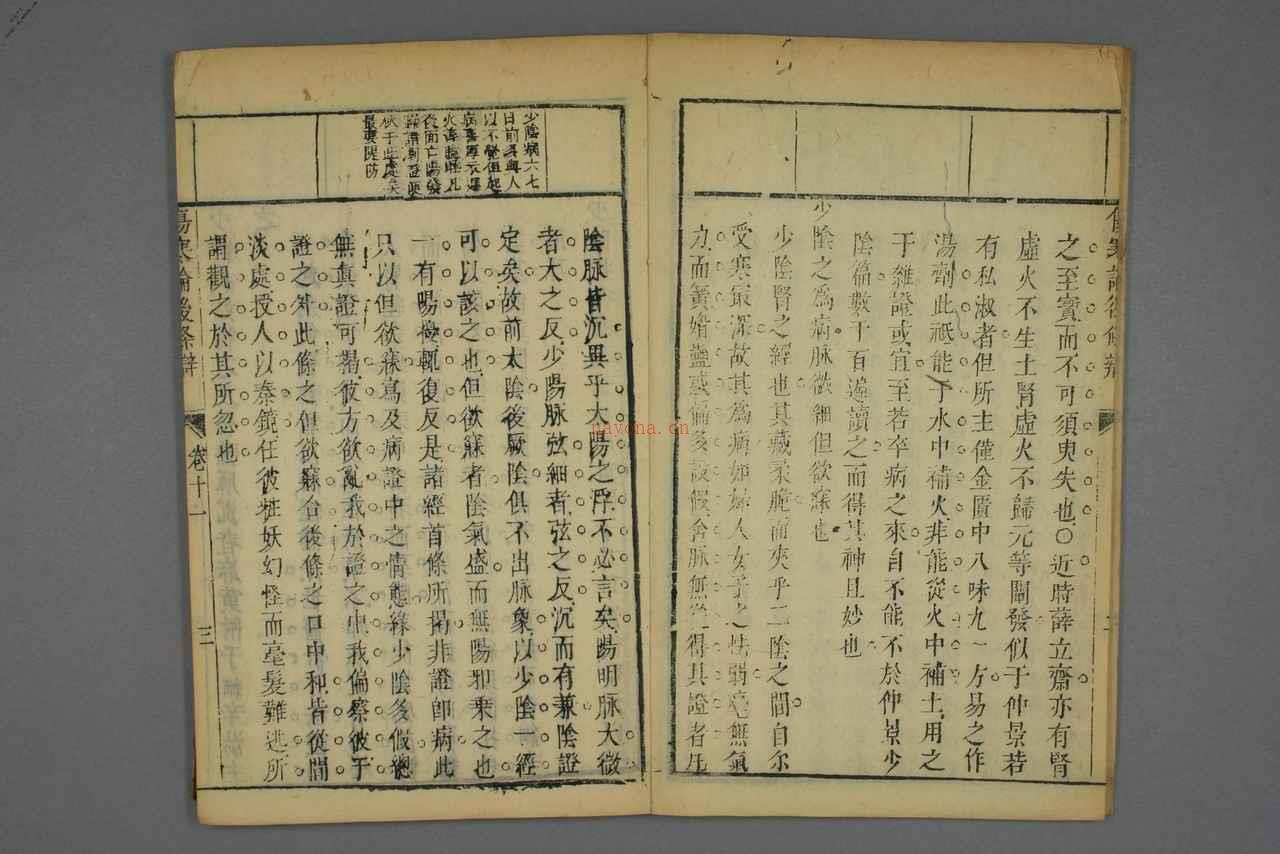 之至寳而不可須臾失也○近時薛立齋亦有腎
虛火不生土腎虛火不歸元等闡發似于仲景若
有私淑者但所主僅金匱中八味丸一方易之作
湯劑此祇能于水中補火非能從火中補土用之
于雜證或宜至若卒病之來自不能不於仲景少
陰篇數十百遍讀之而得其神且妙也
少陰之爲病脉微細但欲寐也
少陰腎之經也其藏柔脆而夾乎二陰之間自尔
受寒最深故其爲病如婦人女子之怯弱毫無氣
力而簧婚蠱惑偏多設假舍脉無從得其證者
少陰病六七
日前多與人
以不覺但起
病喜厚衣近
火善瞌睡凡
後面亡陽發
躁諸劇證便
伏于此處矣
最要隄防
陰脉皆沉異乎太陽之浮不必言矣陽明脉大微
者大之反少陽脉弦細者弦之反沉而有兼陰證
定矣故前太陰後厥陰俱不出脉象以少陰一經
可以該之也但欲寐者陰氣盛而無陽邪乘之也
一有陽擾輒復反是諸經首條所揭非證即病此
只以但欲寐寫及病證中之情態緣少陰多假總
無真證可揭彼方欲亂我於證之中我偏察彼于
證之外此條之但欲寐合後條之口中和皆從閒
淡處授人以秦鏡任彼粧妖幻怪而毫髮難逃所
謂觀之於其所忽也
傷寒論後條辯
卷十一
三
nayona.cn